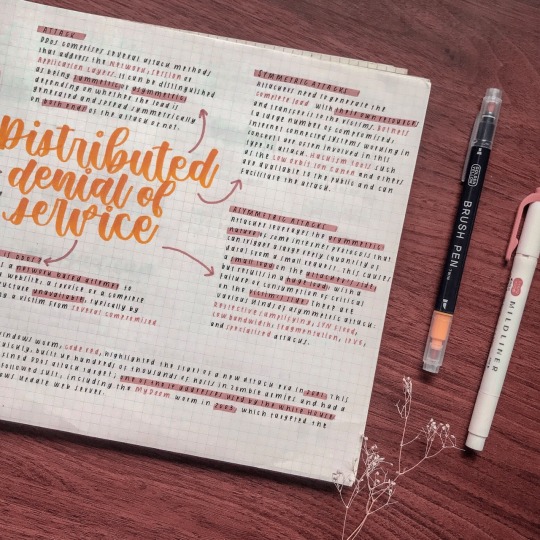 ATTACK
DDOS COMPRISES SEVERAL ATTACK METHODS
THAT ADDRESS THE NETWORK, SESSION OR
APPLICATION LAYERS. IT CAN BE DISTINGUISHED
AS BEING SYMMETRIC OR ASYMMETRIC
DEPENDING ON WHETHER THE LOAD IS
GENERATED AND SPREAD SYMMETRICALLY
ON BOTH ENDS OF THE ATTACK OR NOT.
Distributed
denial of
service
SYMMETRIC ATTACKS
ATTACKERS NEED TO GENERATE THE
COMPLETE LOAD WITH THEIR OWN RESOURCES
AND TRANSFER TO THE VICTIMS. BOTNETS
(A LARGE NUMBER OF COMPROMISED,
INTERNET CONNECTED SYSTEMS) WORKING IN
CONCERT ARE OFTEN INVOLVED IN THIS
TYPE OF ATTACK. HACKTIVISM TOOLS SUCH
AS THE LOW ORBIT ION CANON AND OTHERS
ARE AVAILABLE TO THE PUBLIC AND CAN
FACILITATE THE ATTACK.
ASYMMETRIC ATTACKS
ATTACKER LEVERAGES THE ASYMMETRIC
NATURE OF SOME INTERNET PROTOCOLS THAT
CAN TRIGGER A LARGE REPLY (QUANTITY OF
DATA) FROM A SMALL REQUEST. THIS CAUSES
SMALL LOAD ON THE ATTACKER'S SIDE,
BUT RESULTS IN HUGE LOAD WITH A
FAILURE OR CONSUMPTION OF CRITICAL
ON THE VICTIM'S SIDE. THERE ARE
VARIOUS VECTORS ASYMMETRIC ATTACK:
REFLECTIVE AMPLIFYING, SYN FLOOD,
LOW BANDWIDTH, FRAGMENTATION,
AND SPECIALIZED ATTACKS.
IS DDOS?
A NETWORK BASED ATTEMPT TO
A WEBSITE, A SERVICE OR A COMPLETE
UNAVAILABLE, TYPICALLY BY
A VICTIM FROM SEVERAL COMPROMISED
WINDOWS WORM, CODE RED, HIGHLIGHTED THE START OF A NEW ATTACK ERA IN 2001. THIS
QUICKLY, BUILT UP HUNDREDS OF THOUSANDS OF HOSTS IN ZOMBIE ARMIES AND HAD A
DDOS ATTACK TARGET: ONE OF THE IP ADDRESSES USED BY THE WHITE HOUSE
FOLLOWED SUIT, INCLUDING THE MYDOOM WORM IN 2003, WHICH TARGETED THE
UPDATE WEB SERVER.
BRUSH PEN
MILDLINER